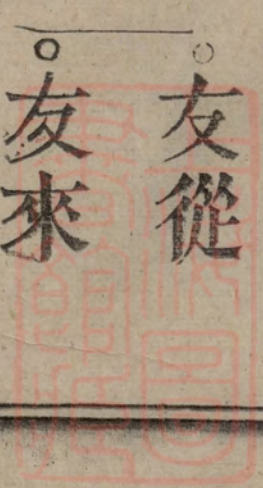 ○友從
○友來